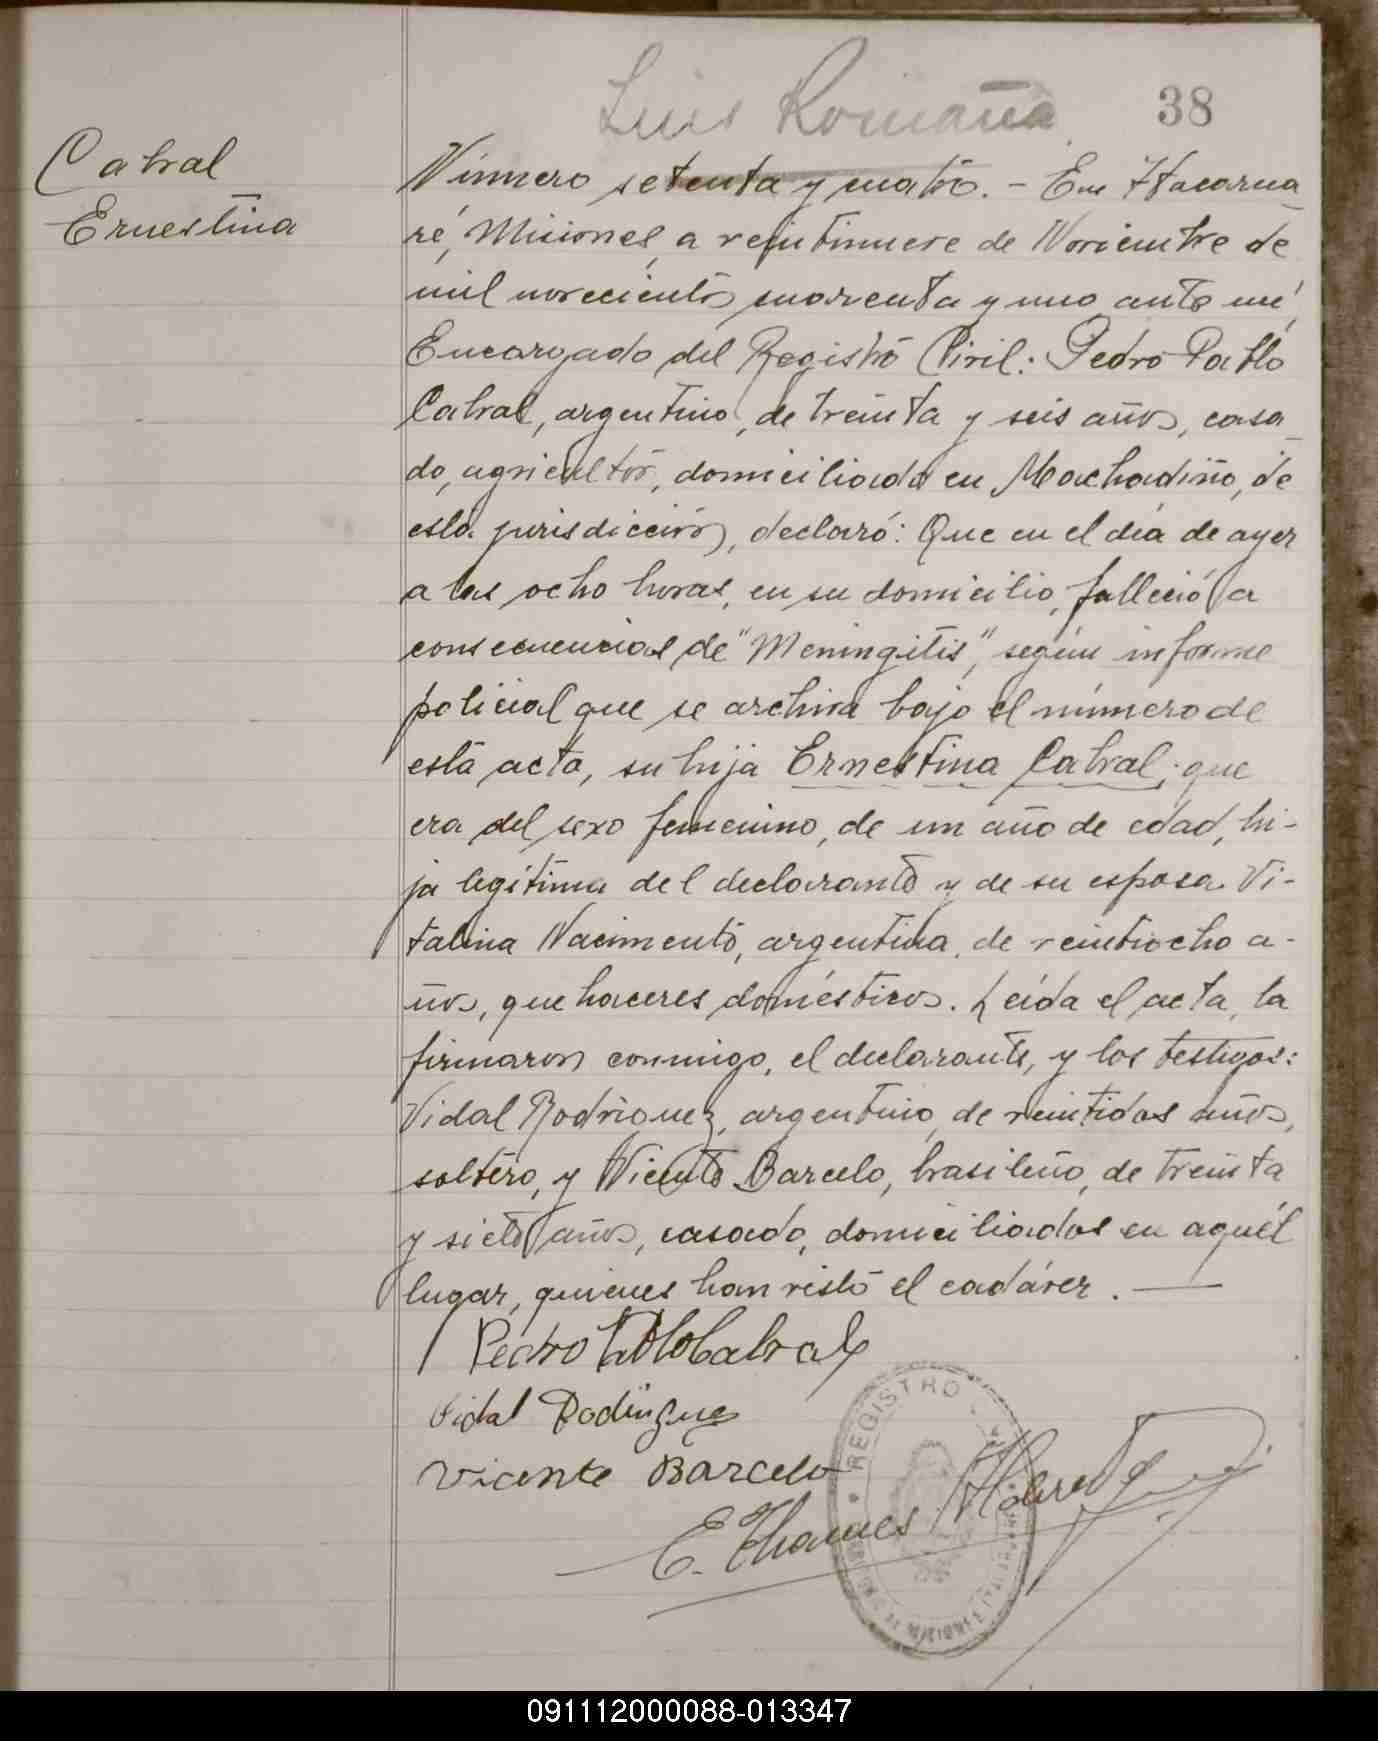 Luis Romaña
38
Cabral
Ernestina
Número setenta y cuatro. - En Itacarua-
ré, Misiones, a veintinueve de Noviembre de
mil novecientos cuarenta y uno ante mí,
Encargado del Registro Civil: Pedro Pablo
Cabral, argentino, de treinta y seis años, casa-
do, agricultor, domiciliado en Machadiño, de
esta jurisdicción, declaró: Que en el día de ayer
a las ocho horas, en su domicilio, falleció a
consecuencias de "Meningitis", según informe
policial que se archiva bajo el número de
esta acta, su hija Ernestina Cabral; que
era del sexo femenino, de un año de edad, hi-
ja legítima del declarante y de su esposa Vi-
talina Nacimento, argentina, de veintiocho a-
ños, quehaceres domésticos. Leída el acta, la
firmaron conmigo, el declarante, y los testigos:
Vidal Rodriguez, argentino, de veintidos años,
soltero, y Vicente Barcelo, brasileño, de treinta
y siete años, casado, domiciliados en aquél
lugar, quienes han visto el cadáver.
Pedro Pablo Cabral
Vidal Rodriguez
Vicente Barcelo
E. Thames
REGISTRO
091112000088-013347